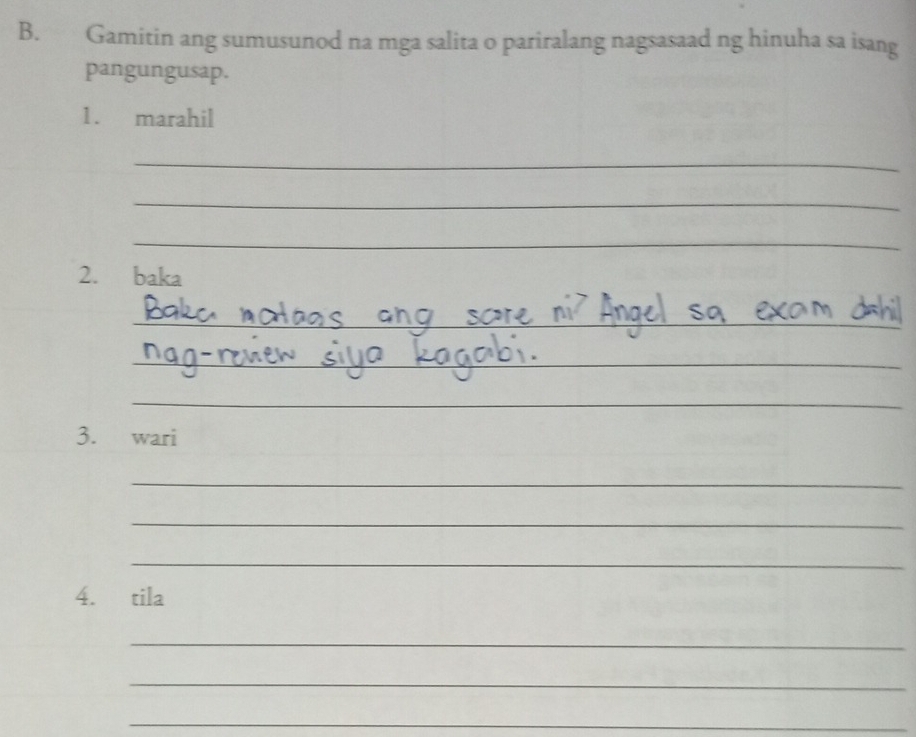 B. Gamitin ang sumusunod na mga salita o pariralang nagsasaad ng hinuha sa isang
pangungusap.
1. marahil
2. baka
Baka mataas ang score ni Angel sa exam dahil
nag-review siya kagabi.
3. wari
4. tila